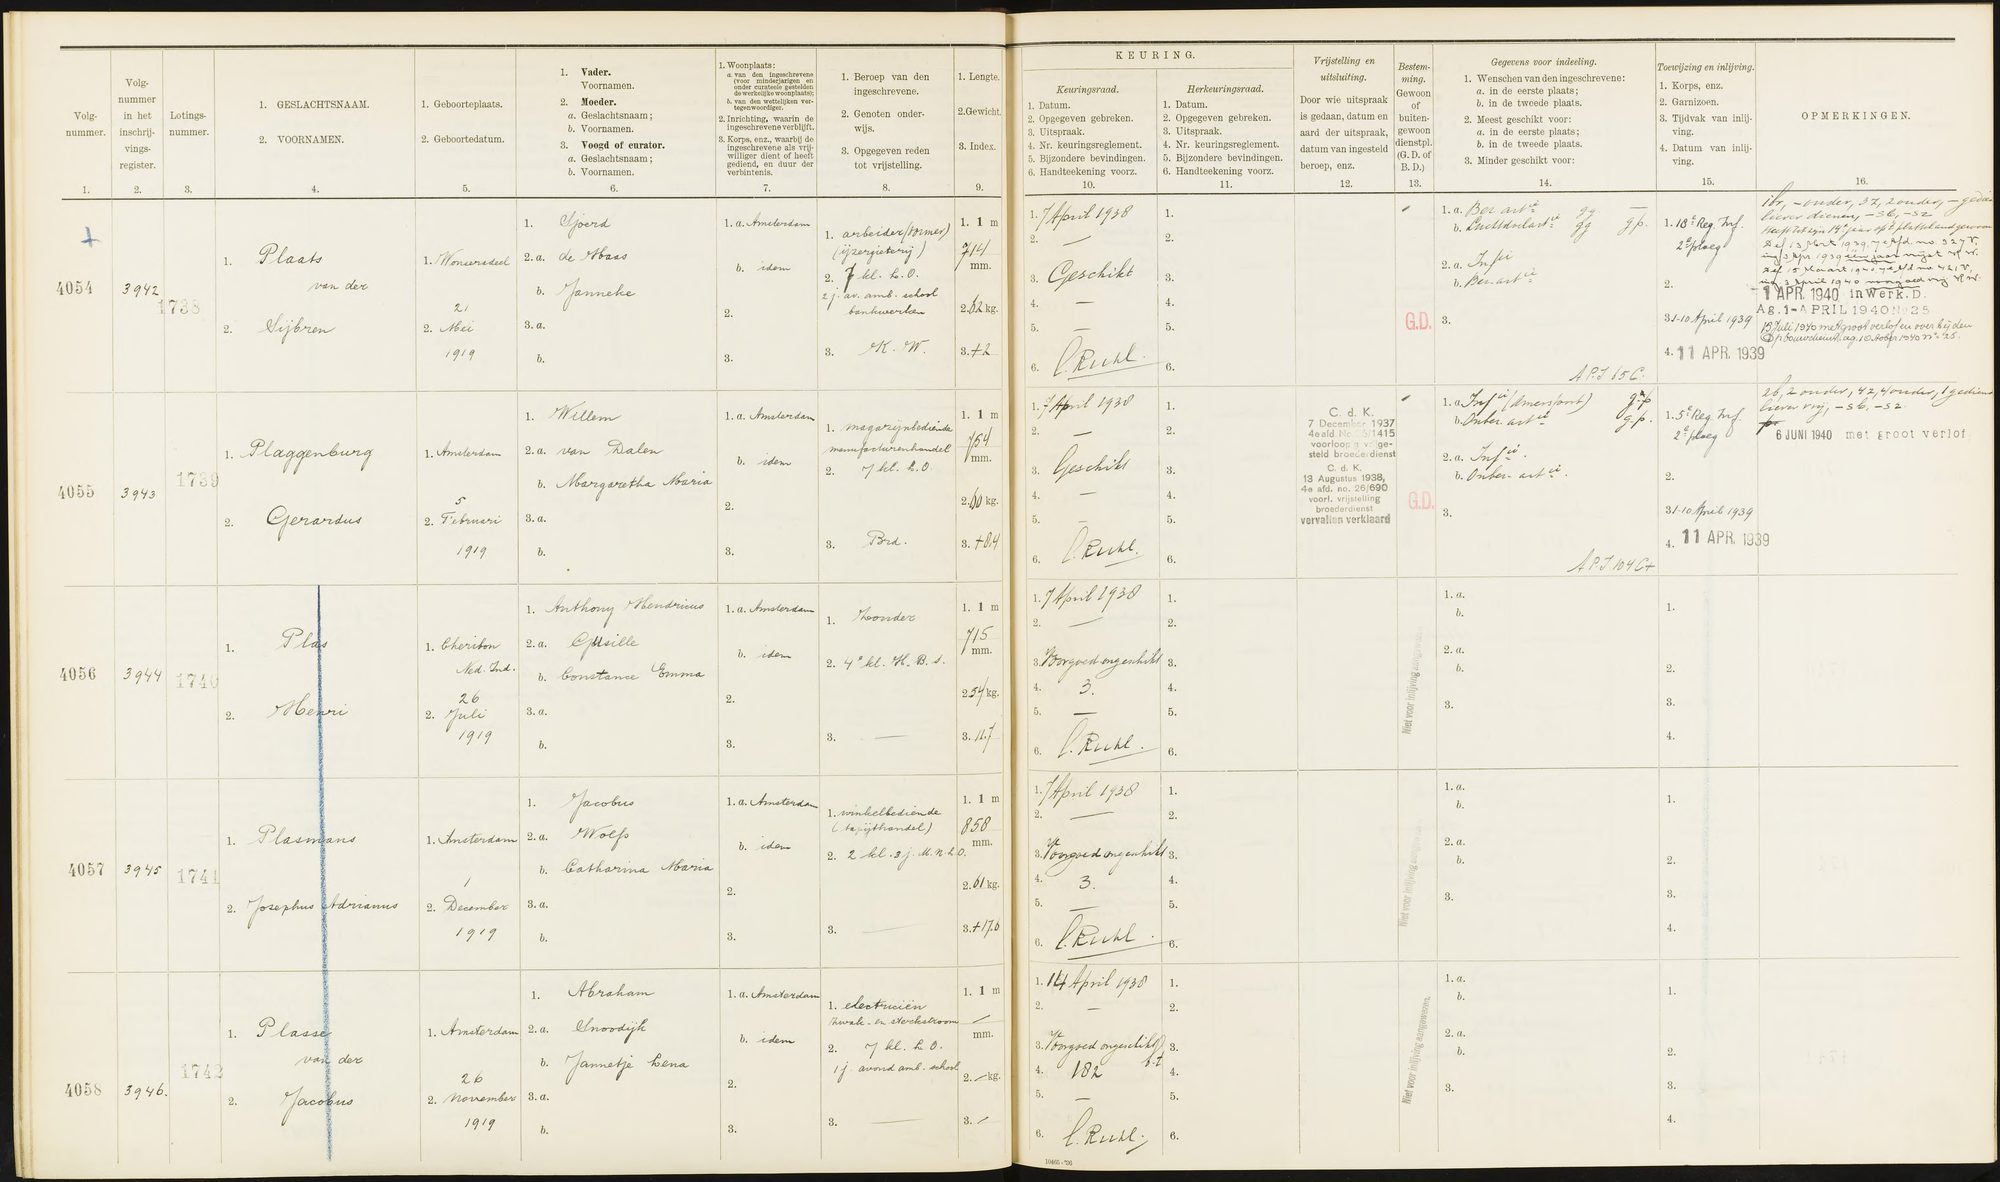 Volg-
nummer.
1.
Volg-
nummer
in het
inschrij-
vings-
register.
2.
Lotings-
nummer.
3.
1. GESLACHTSNAAM.
2. VOORNAMEN.
4.
1. Geboorteplaats.
2. Geboortedatum.
5.
1. Vader.
Voornamen.
2. Moeder.
a. Geslachtsnaam;
b. Voornamen.
3. Voogd of curator.
a. Geslachtsnaam;
b. Voornamen.
6.
1. Woonplaats:
a. van den ingeschrevene
(voor minderjarigen en
onder curateele gestelden
de werkelijke woonplaats);
b. van den wettelijken ver-
tegenwoordiger.
2. Inrichting, waarin de
ingeschrevene verblijft.
3. Korps, enz., waarbij de
ingeschrevene als vrij-
williger dient of heeft
gediend, en duur der
verbintenis.
7.
1. Beroep van den
ingeschrevene.
2. Genoten onder-
wijs.
3. Opgegeven reden
tot vrijstelling.
8.
1. Lengte.
2. Gewicht.
3. Index.
9.
KEURING.
Keuringsraad.
1. Datum.
2. Opgegeven gebreken.
3. Uitspraak.
4. Nr. keuringsreglement.
5. Bijzondere bevindingen.
6. Handteekening voorz.
10.
Herkeuringsraad.
1. Datum.
2. Opgegeven gebreken.
3. Uitspraak.
4. Nr. keuringsreglement.
5. Bijzondere bevindingen.
6. Handteekening voorz.
11.
Vrijstelling en
uitsluiting.
Door wie uitspraak
is gedaan, datum en
aard der uitspraak,
datum van ingesteld
beroep, enz.
12.
Bestem-
ming.
Gewoon
of
buiten-
gewoon
dienstpl.
(G.D. of
B.D.)
13.
Gegevens voor indeeling.
1. Wenschen van den ingeschrevene:
a. in de eerste plaats;
b. in de tweede plaats.
2. Meest geschikt voor:
a. in de eerste plaats;
b. in de tweede plaats.
3. Minder geschikt voor:
14.
Toewijzing en inlijving.
1. Korps, enz.
2. Garnizoen.
3. Tijdvak van inlij-
ving.
4. Datum van inlij-
ving.
15.
OPMERKINGEN.
16.
4054
3942
1738
1. Plaats
van der
2. Sijbren
1. Wonseradeel
2. 21
Mei
1919
1. Sjoerd
2. a. de Haas
b. Janneke
3. a.
b.
1. a. Amsterdam
b. idem
2.
3.
1. arbeider (vormer)
(ijzergieterij)
2. 7 kl. L.O.
2 j. av. amb. school
bankwerken
3. K. W.
1. 1 m
714
mm.
2. 62 kg.
3. +2
1. 7 April 1938
2. —
3. Geschikt
4. —
5. —
6. C. Ruhl.
1.
2.
3.
4.
5.
6.
G.D.
1. a. Ber. artie gg —
b. Luchtdoelartie gg g.p.
2. a. Infie
b. Ber. artie
3.
A P.J 65 C.
1. 18e Reg. Inf.
2e ploeg
2.
3. 1-10 April 1939
4. 11 APR. 1939
liever dienen, – s6, – s2
1 APR. 1940 in Werk. D.
Ag. 1-APRIL 1940 No 25
13 Juli 1940 met groot verlof en over bij den
Opbouwdienst, ag. 10 October 1940 no 25.
4055
3943
1739
1. Plaggenburg
2. Gerardus
1. Amsterdam
2. 5
Februari
1919
1. Willem
2. a. van Dalen
b. Margaretha Maria
3. a.
b.
1. a. Amsterdam
b. idem
2.
3.
1. magazijnbediende
manufacturenhandel
2. 7 kl. L.O.
3. Brd.
1. 1 m
754
mm.
2. 60 kg.
3. +8.4
1. 7 April 1938
2. —
3. Geschikt
4. —
5. —
6. C. Ruhl.
1.
2.
3.
4.
5.
6.
C. d. K.
7 December 1937
4e afd. No. 5/1415
voorloopig vrijge-
steld broederdienst
C. d. K.
13 Augustus 1938,
4e afd. no. 26/690
voorl. vrijstelling
broederdienst
vervallen verklaard
G.D.
1. a. Infie (Amersfoort) g.p
b. Onber. artie g.p.
2. a. Infie.
b. Onber. artie.
3.
A P.J 104 C+
1. 5e Reg. Inf.
2e ploeg
2.
3. 1-10 April 1939
4. 11 APR. 1939
26, 2 onder, 42, 4 onder, 1 gediend
liever vrij, – s6, – s2
6 JUNI 1940 met groot verlof
4056
3944
1740
1. Plas
2. Henri
1. Cheribon
Ned. Ind.
2. 26
Juli
1919
1. Anthony Hendricus
2. a.
b. Constance Emma
3. a.
b.
1. a. Amsterdam
b. idem
2.
3.
1. zonder
2. 4e kl. H.B.S.
3. —
1. 1 m
715
mm.
2. 54 kg.
3. 11.7
1. 7 April 1938
2. —
3. Voorgoed ongeschikt
4. 3.
5. —
6. C. Ruhl.
1.
2.
3.
4.
5.
6.
Niet voor inlijving aangewezen.
1. a.
b.
2. a.
b.
3.
1.
2.
3.
4.
4057
3945
1741
1. Plasmans
2. Josephus Adrianus
1. Amsterdam
2. 1
December
1919
1. Jacobus
2. a. Wolfs
b. Catharina Maria
3. a.
b.
1. a. Amsterdam
b. idem
2.
3.
1. winkelbediende
(tapijthandel)
2. 2 kl. 3 j. M.N.L.O.
3. —
1. 1 m
858
mm.
2. 61 kg.
3. +17.6
1. 7 April 1938
2. —
3. Voorgoed ongeschikt
4. 3.
5. —
6. C. Ruhl.
1.
2.
3.
4.
5.
6.
Niet voor inlijving aangewezen.
1. a.
b.
2. a.
b.
3.
1.
2.
3.
4.
4058
3946.
1742
1. Plasse
van der
2. Jacobus
1. Amsterdam
2. 26
November
1919
1. Abraham
2. a. Snoodijk
b. Jannetje Lena
3. a.
b.
1. a. Amsterdam
b. idem
2.
3.
1. electriciën
zwak- en sterkstroom
2. 7 kl. L.O.
1 j. avond amb. school
3. —
1. 1 m
—
mm.
2. — kg.
3. —
1. 14 April 1938
2. —
3. Voorgoed ongeschikt
4. 182
5. —
6. C. Ruhl.
1.
2.
3.
4.
5.
6.
Niet voor inlijving aangewezen.
1. a.
b.
2. a.
b.
3.
1.
2.
3.
4.
10465 - '36